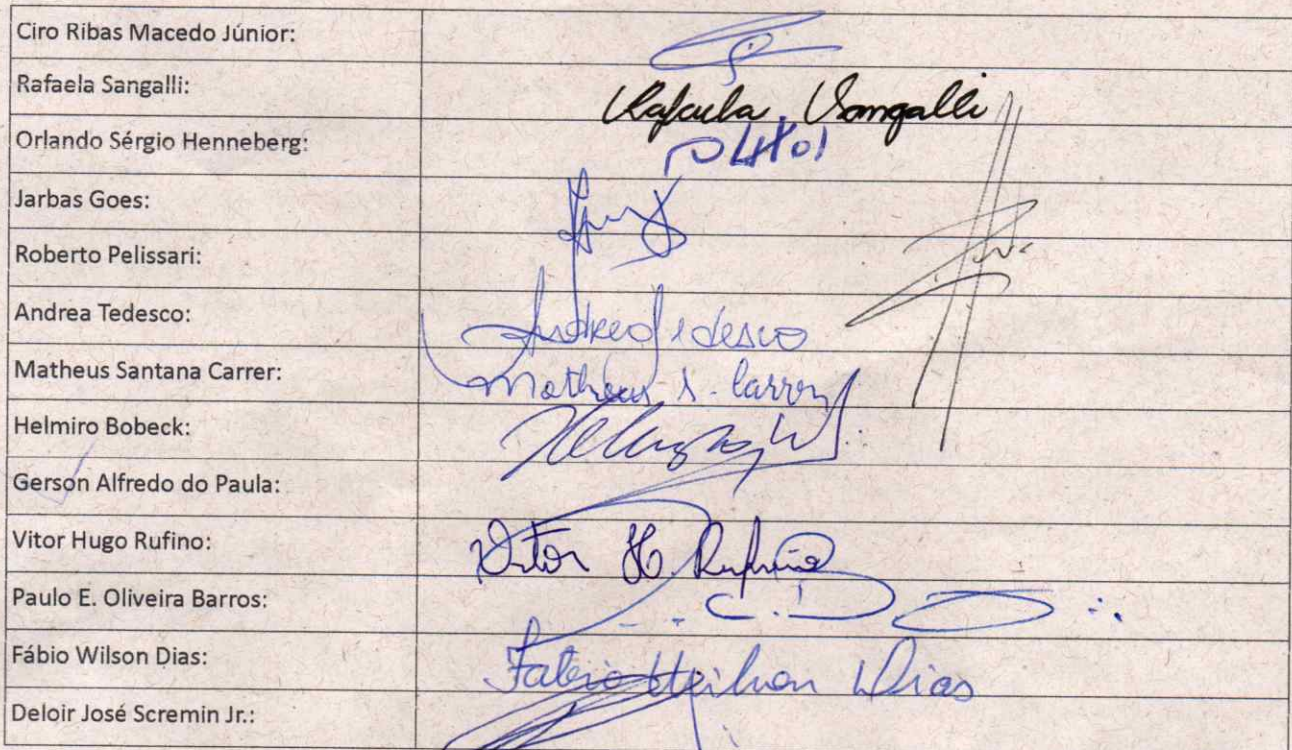 Ciro Ribas Macedo Júnior:
Rafaela Sangalli: Rafaela Sangalli
Orlando Sérgio Henneberg:
Jarbas Goes:
Roberto Pelissari:
Andrea Tedesco: Andrea Tedesco
Matheus Santana Carrer: Matheus S. Carrer
Helmiro Bobeck:
Gerson Alfredo do Paula:
Vitor Hugo Rufino: Vitor H. Rufino
Paulo E. Oliveira Barros:
Fábio Wilson Dias: Fabio Wilson Dias
Deloir José Scremin Jr.: